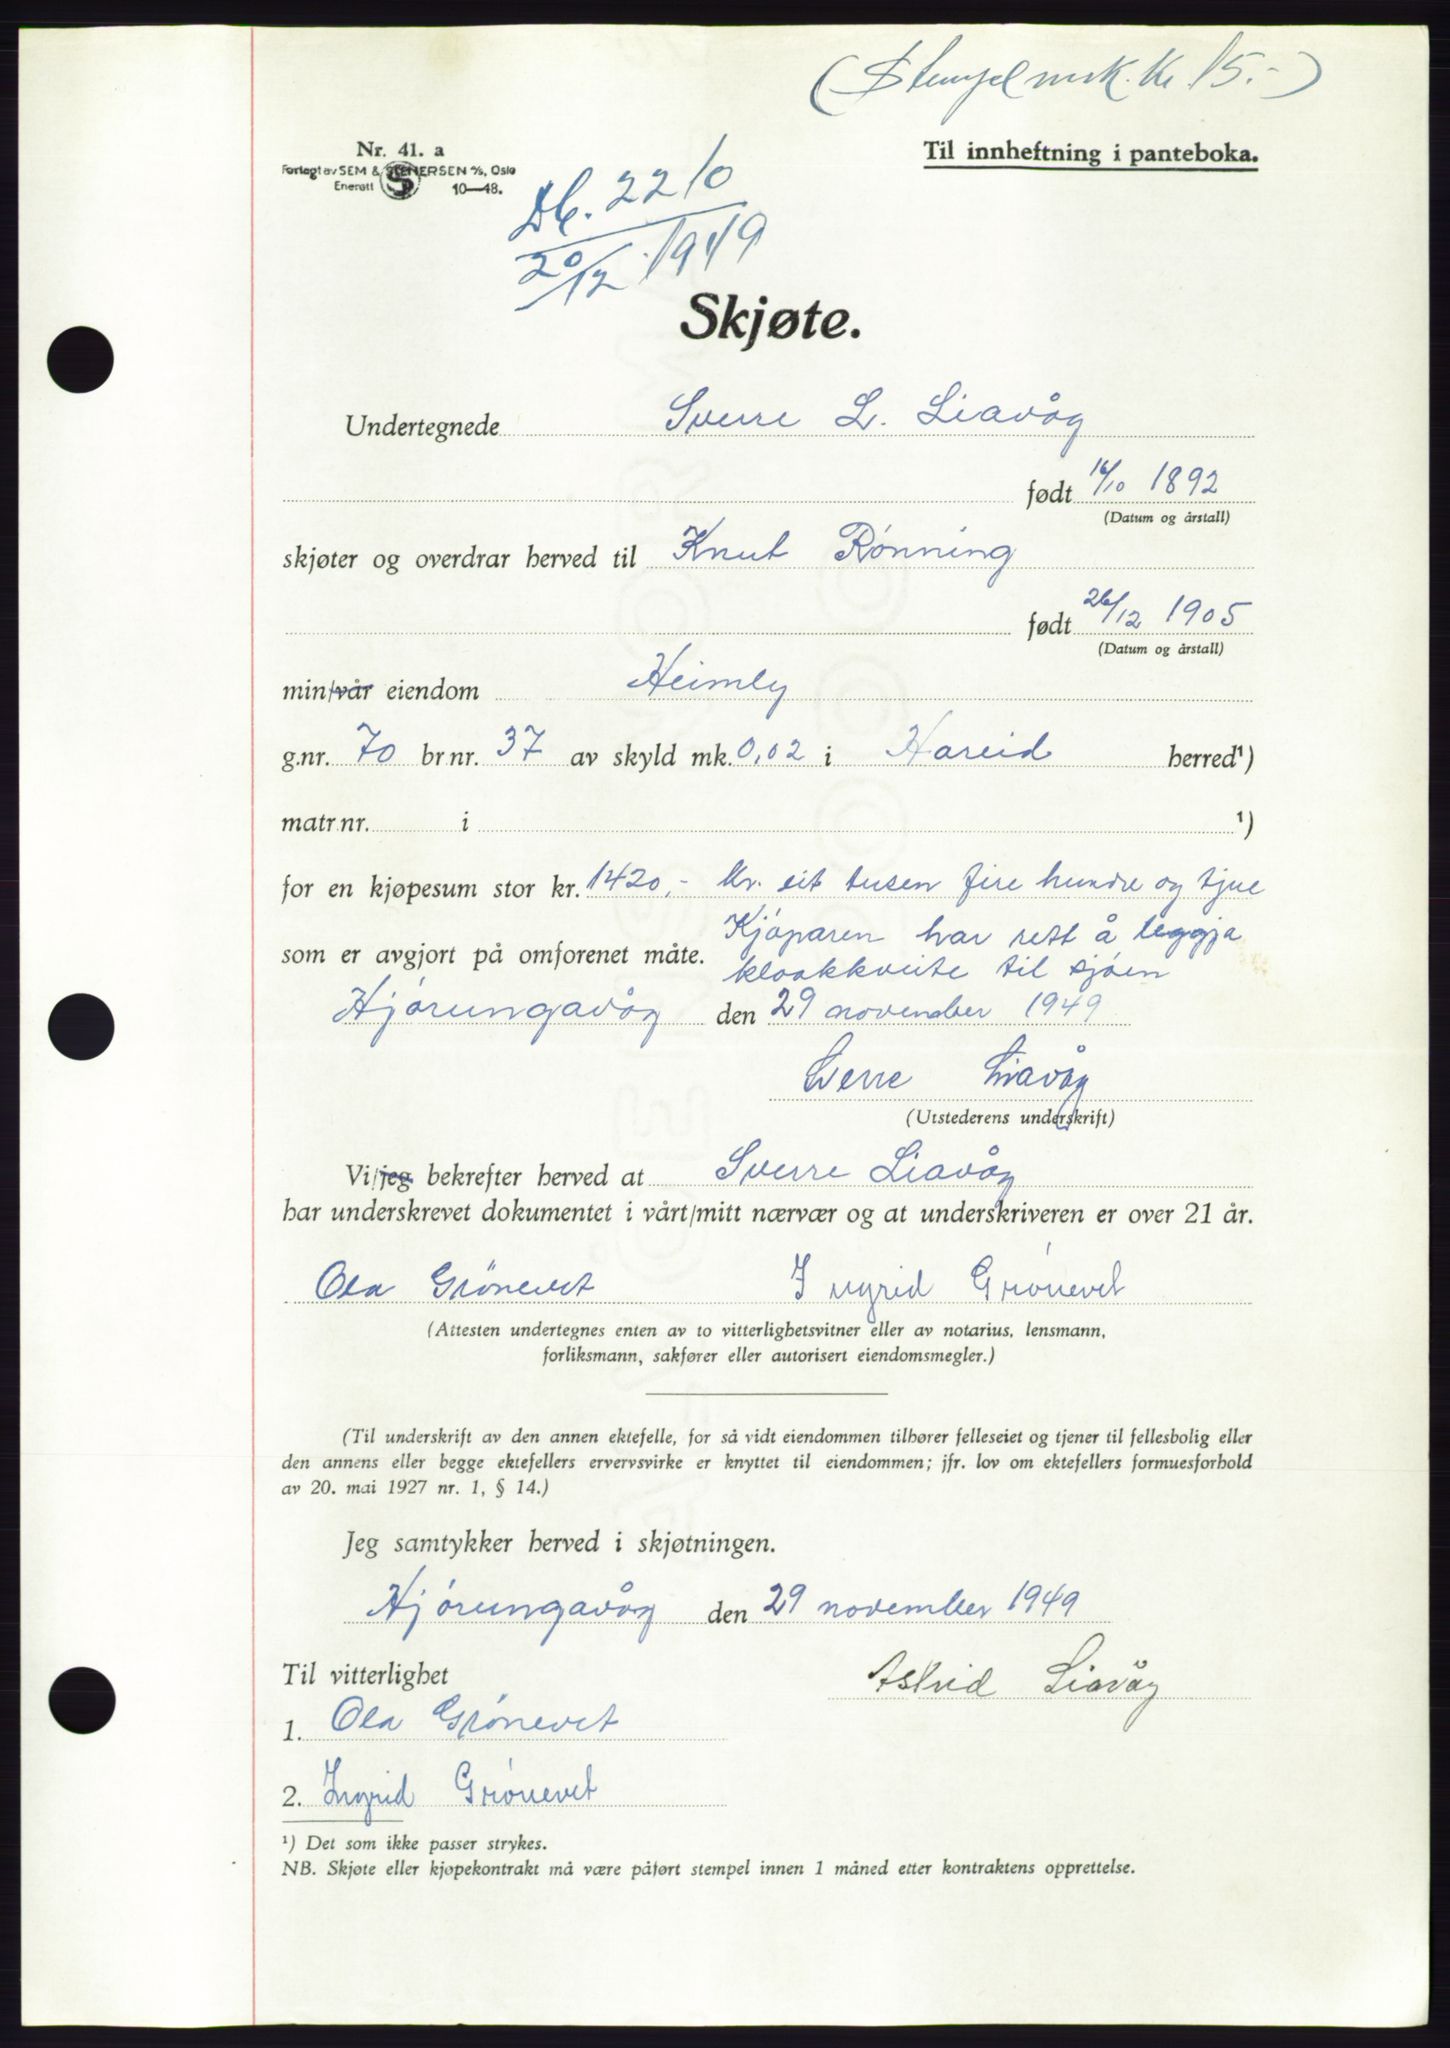 (Stempelmrk. kr. 15.-)
Nr. 41. a
Forlagt av SEM & STENERSEN A/S, Oslo
Enerett 10—48.
Til innheftning i panteboka.
Db. 2210
20/12 1949
Skjøte.
Undertegnede Sverre L. Liavåg
født 16/10 1892
(Datum og årstall)
skjøter og overdrar herved til Knut Rønning
født 26/12 1905
(Datum og årstall)
min/vår eiendom Heimly
g.nr. 70 br.nr. 37 av skyld mk. 0,02 i Hareid herred¹)
matr.nr. i ¹)
for en kjøpesum stor kr. 1420,- Kr. eit tusen fire hundre og tjue
som er avgjort på omforenet måte. Kjøparen har rett å leggja
kloakkveite til sjøen
Hjørungavåg den 29 november 1949
Sverre Liavåg
(Utstederens underskrift)
Vi/jeg bekrefter herved at Sverre Liavåg
har underskrevet dokumentet i vårt/mitt nærvær og at underskriveren er over 21 år.
Ola Grönevet Ingrid Grónevet
(Attesten undertegnes enten av to vitterlighetsvitner eller av notarius, lensmann,
forliksmann, sakfører eller autorisert eiendomsmegler.)
(Til underskrift av den annen ektefelle, for så vidt eiendommen tilhører felleseiet og tjener til fellesbolig eller
den annens eller begge ektefellers ervervsvirke er knyttet til eiendommen; jfr. lov om ektefellers formuesforhold
av 20. mai 1927 nr. 1, § 14.)
Jeg samtykker herved i skjøtningen.
Hjørungavåg den 29 november 1949
Til vitterlighet Astrid Liavåg
1. Ola Grónevet
2. Ingrid Grónevet
¹) Det som ikke passer strykes.
NB. Skjøte eller kjøpekontrakt må være påført stempel innen 1 måned etter kontraktens opprettelse.